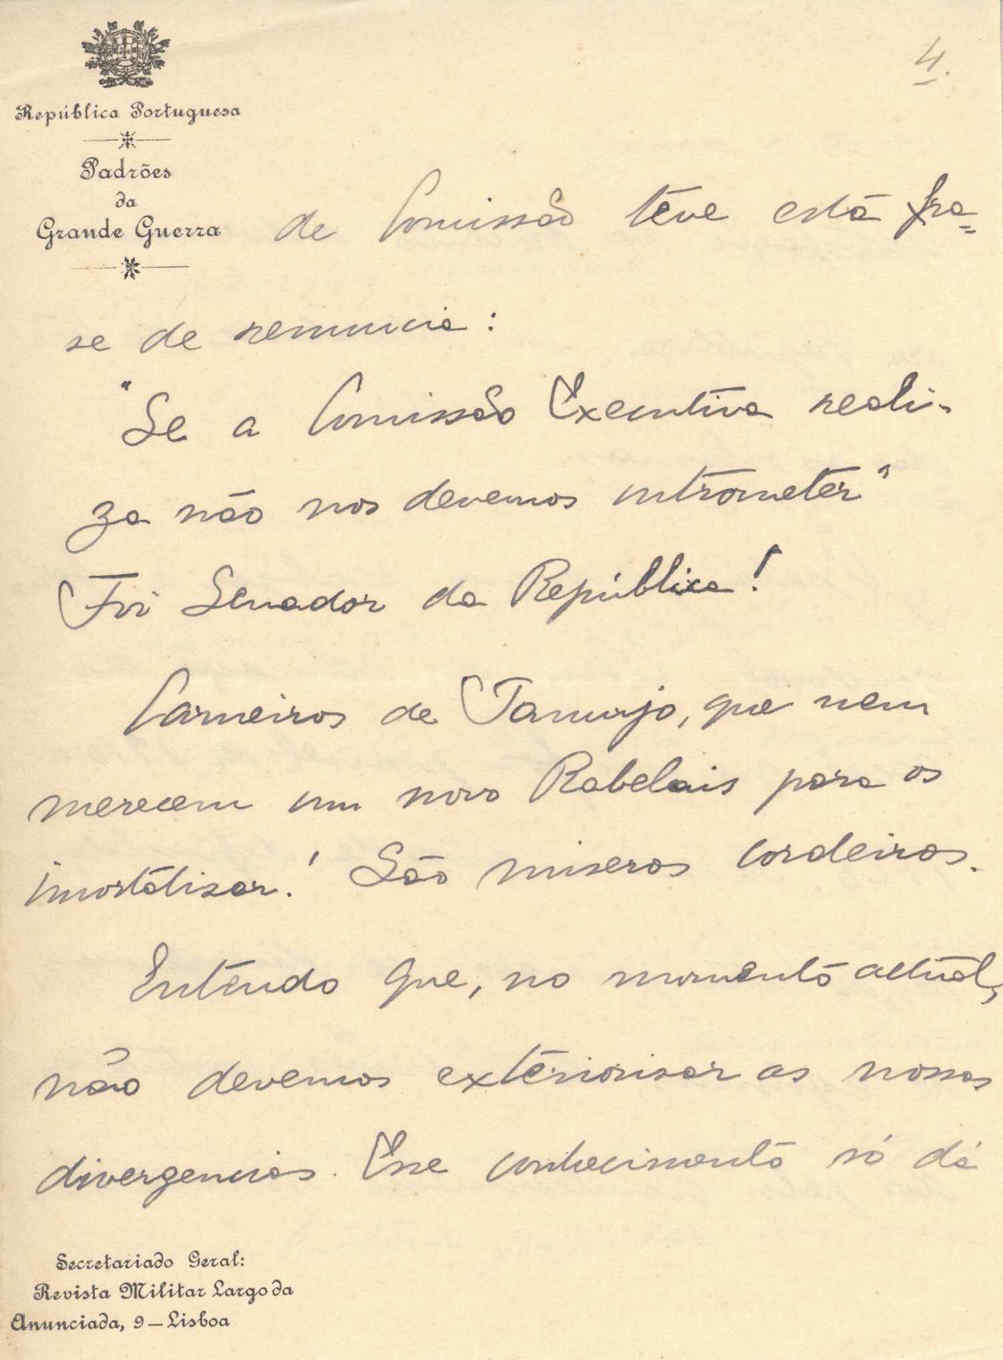 4.
República Portuguesa
Padrões
da
Grande Guerra
de Comissão teve está fra=
se de renuncia:
"Se a Comissão Executiva reali-
za não nos devemos intrometer"
Foi Senador da República!
Carneiros de Panurjo, que nem
merecem um novo Rabelais para os
imortalisar! São miseros cordeiros.
Entendo que, no momento actual,
não devemos exteriorisar as nossas
divergencias. Esse conhecimento só dá
Secretariado Geral:
Revista Militar Largo da
Anunciada, 9 — Lisboa